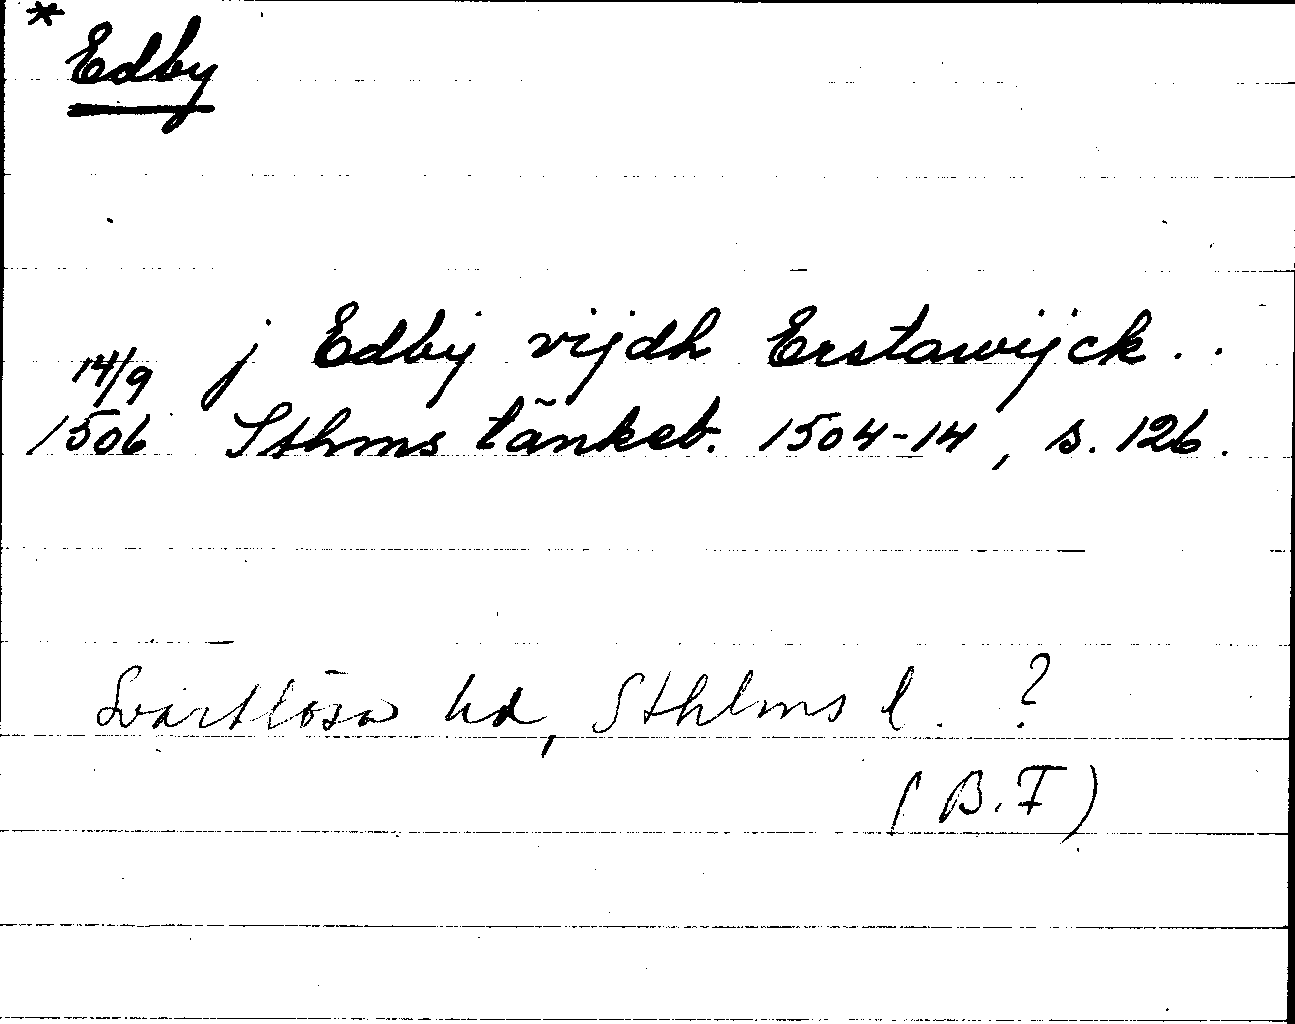 * Edby
j Edbij vijdh Erstawijck..
14/9
1506 Sthms tänkeb. 1504-14, s. 126.
Svartlösa hd, Sthlms l. ?
(B.F)